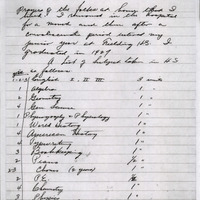 Prayers of the folks at home lifted I
liked I remained in the hospital
for a month and then after a
convalescent period entered my
Junior year at Redding HS. I
graduated in 1927
A list of subjects taken in HS
is as follows
1-2-3 English I, II, III 3 units
1 Algebra 1 "
2 Geometry 1 "
4 Gen Science 1 "
Physiography & Physiology 1 "
World History 1 "
4 American History 1 "
4 Typewriting 1 "
3 Bookkeeping 1 "
2 Piano ½ "
2-3 Chorus (2 years)
2 P.E. ½ "
4 Chemistry 1 "
3 Physics 1 "